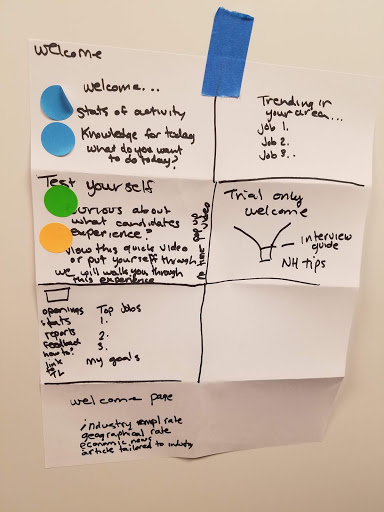 Welcome
welcome...
Stats of activity
Knowledge for today
what do you want
to do today?
Trending in
your area...
Job 1.
Job 2.
Job 3..
Test yourself
curious about
what candidates
experience?
view this quick video
or put yourself through
we will walk you through
this experience
pop up
video
Trial only
welcome
interview
guide
NH tips
openings
stats
reports
feedback
how to?
link
to
TL
Top Jobs
1.
2.
3.
my goals
welcome page
industry templ rate
geographical rate
economic news
article tailored to industry